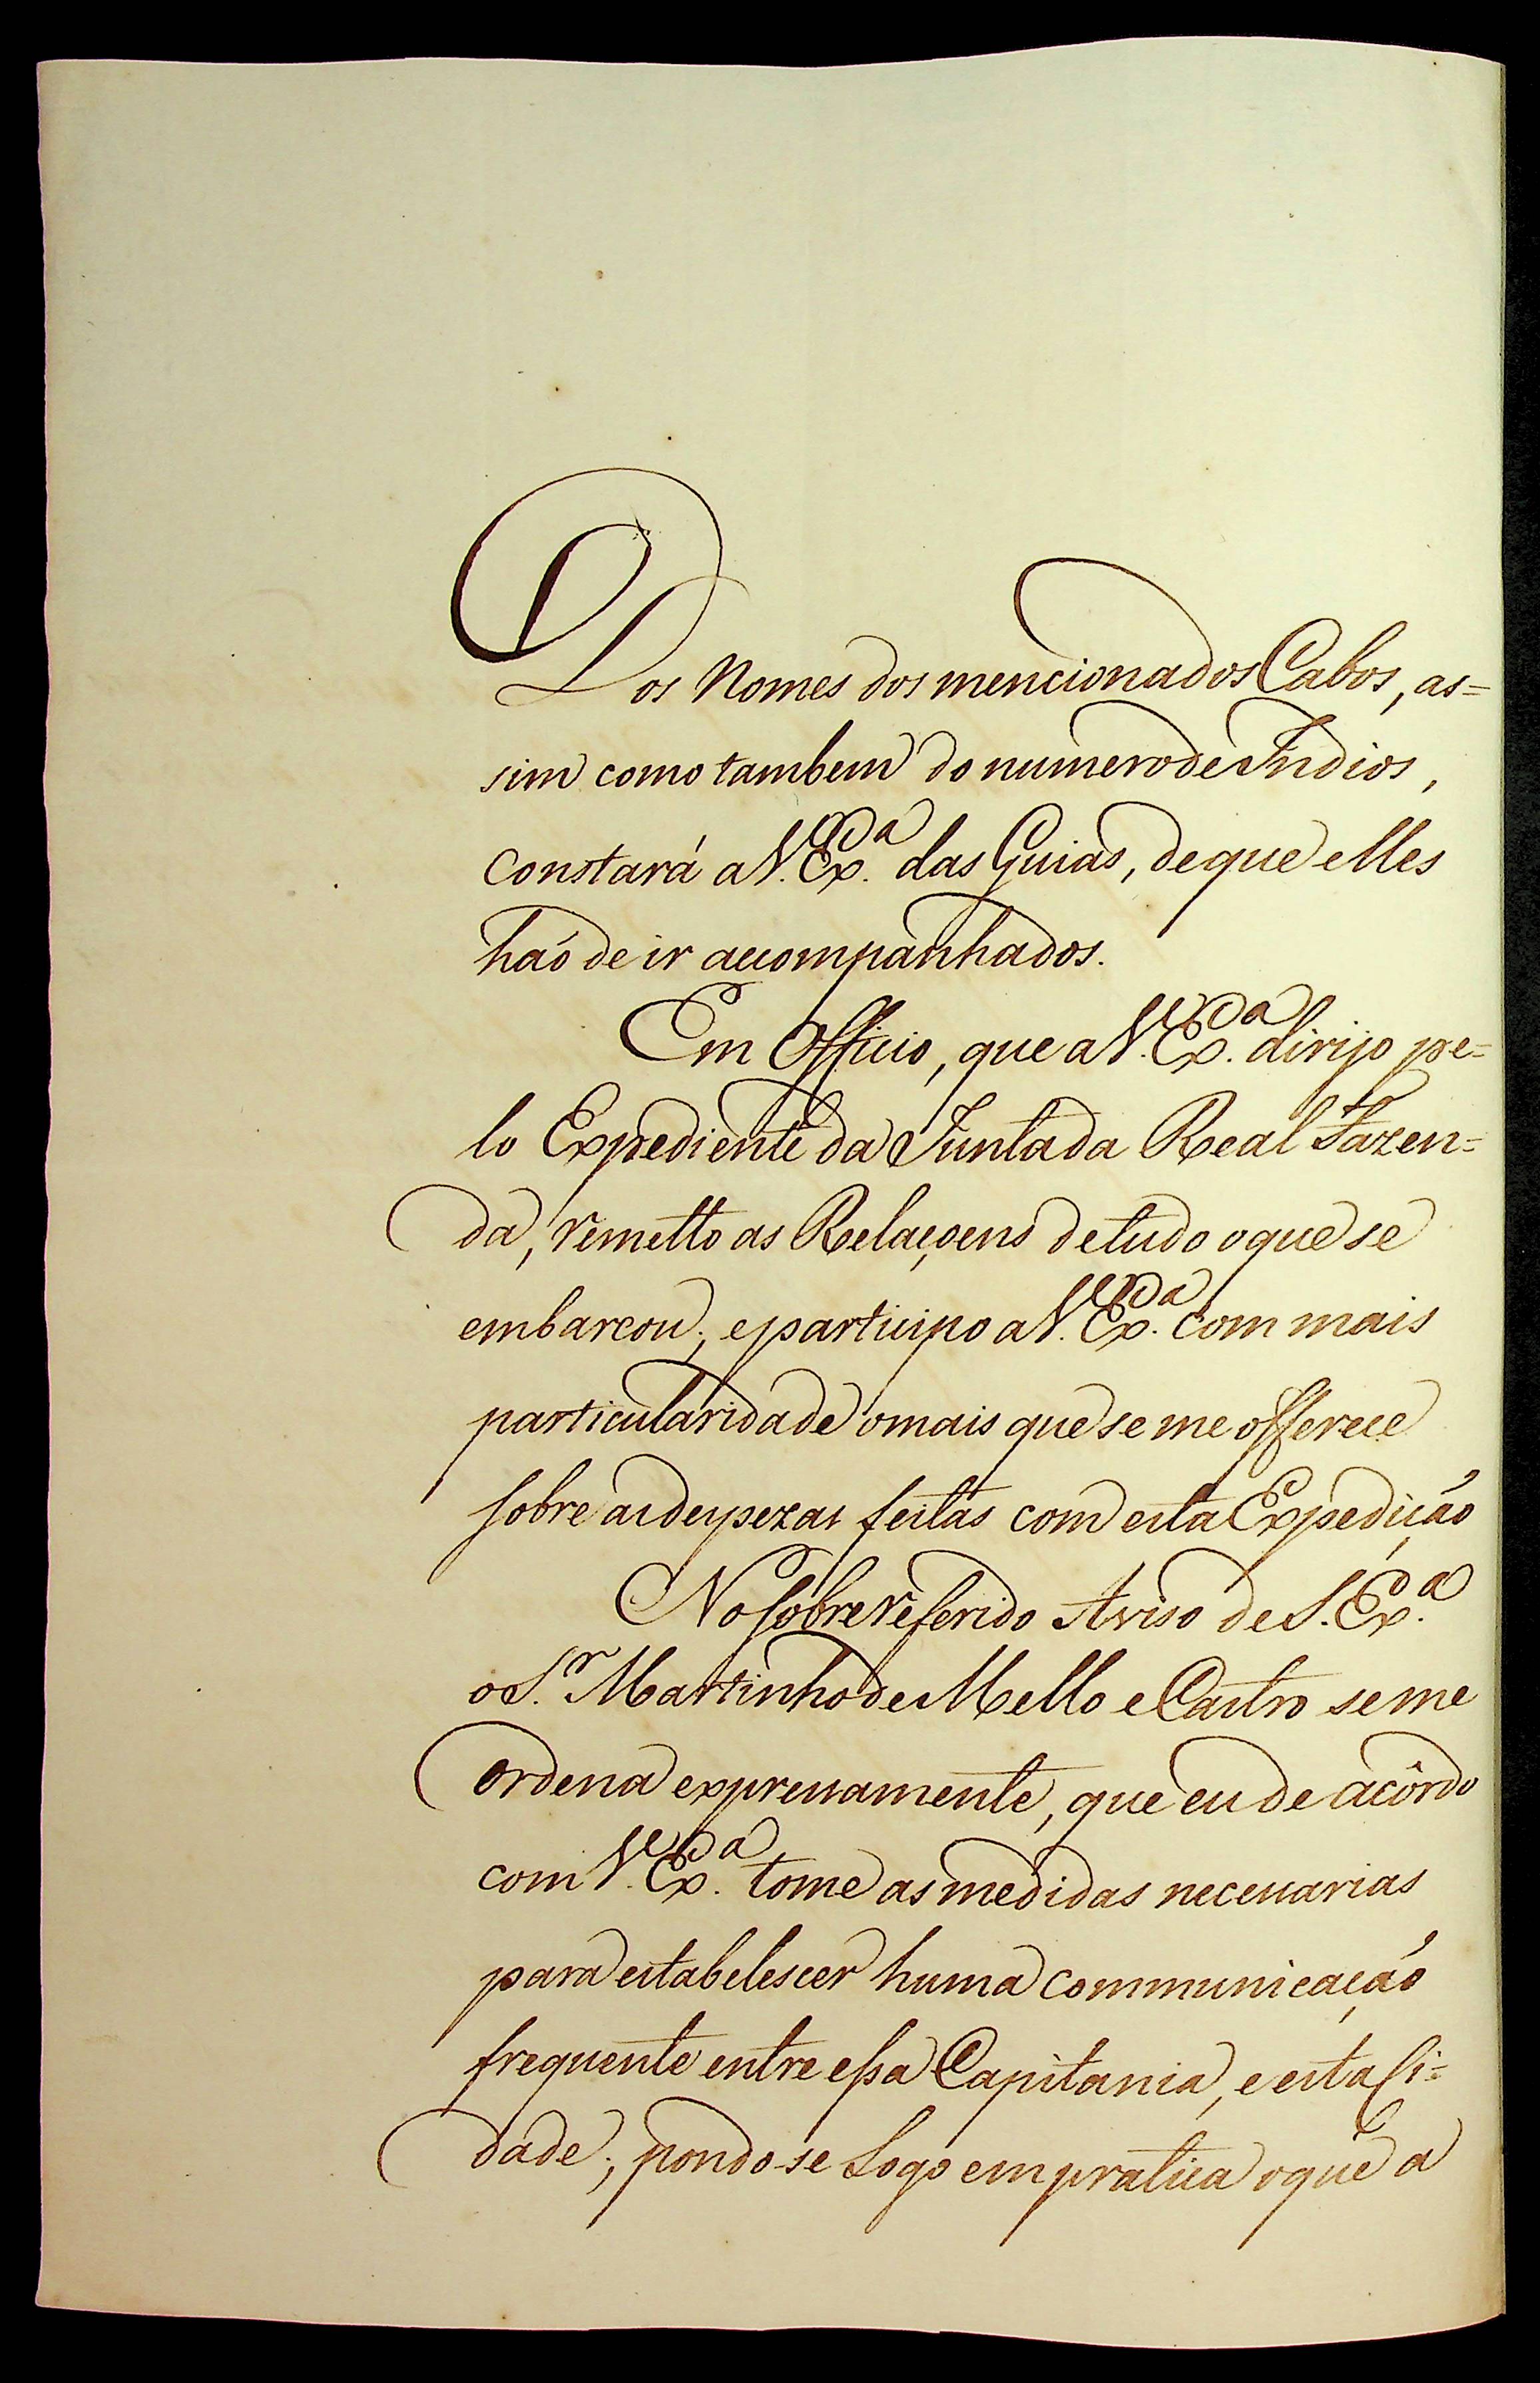 Dos Nomes dos mencionados Cabos, as=
sim como tambem do numero de Indios,
constará a V. Ex.ª das Guias, de que elles
haõ de ir accompanhados.
Em Officio, que a V. Ex.ª dirijo pe=
lo Expediente da Junta da Real Fazen=
da, remetto as Relaçoens de tudo o que se
embarcou; e participo a V. Ex.ª com mais
particularidade o mais que se me offerece
sobre as despezas feitas com esta Expediçáo
No sobre referido Aviso de S. Ex.ª
o S.r Martinho de Mello e Castro se me
ordena expressamente, que eu de acôrdo
com V. Ex.ª tome as medidas necessarias
para estabelescer huma communicaçáo
frequente entre essa Capitania, e esta Ci=
dade; pondo-se Logo em pratica o que a